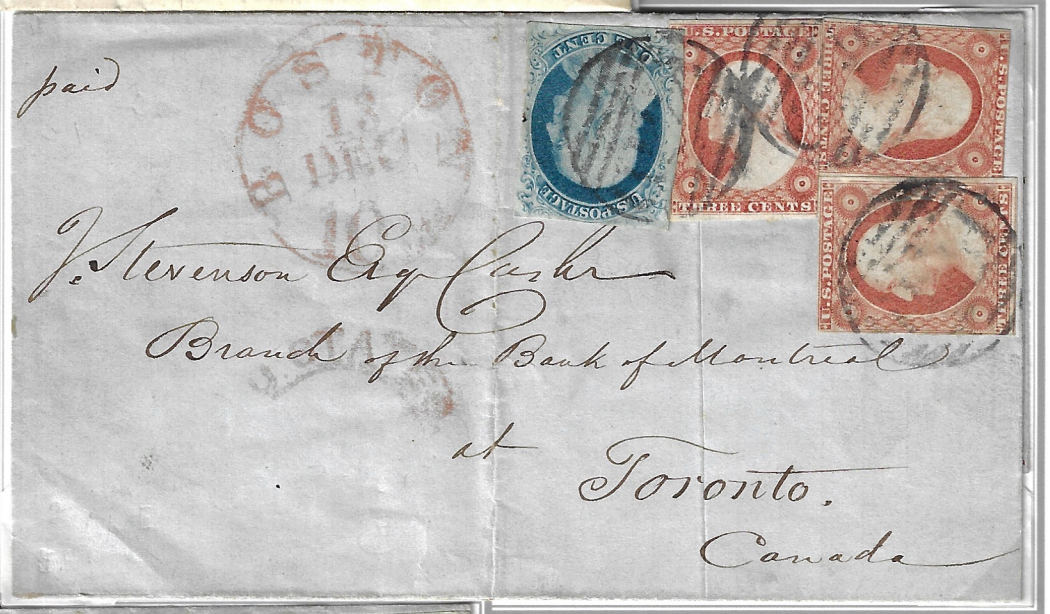 paid
BOSTON
13
DEC
10
ONE CENT
U.S. POSTAGE
U.S. POSTAGE
THREE CENTS
U.S. POSTAGE
THREE CENTS
U.S. POSTAGE
THREE CENTS
J. Stevenson Esq Cashr
Branch of the Bank of Montreal
at
Toronto.
Canada